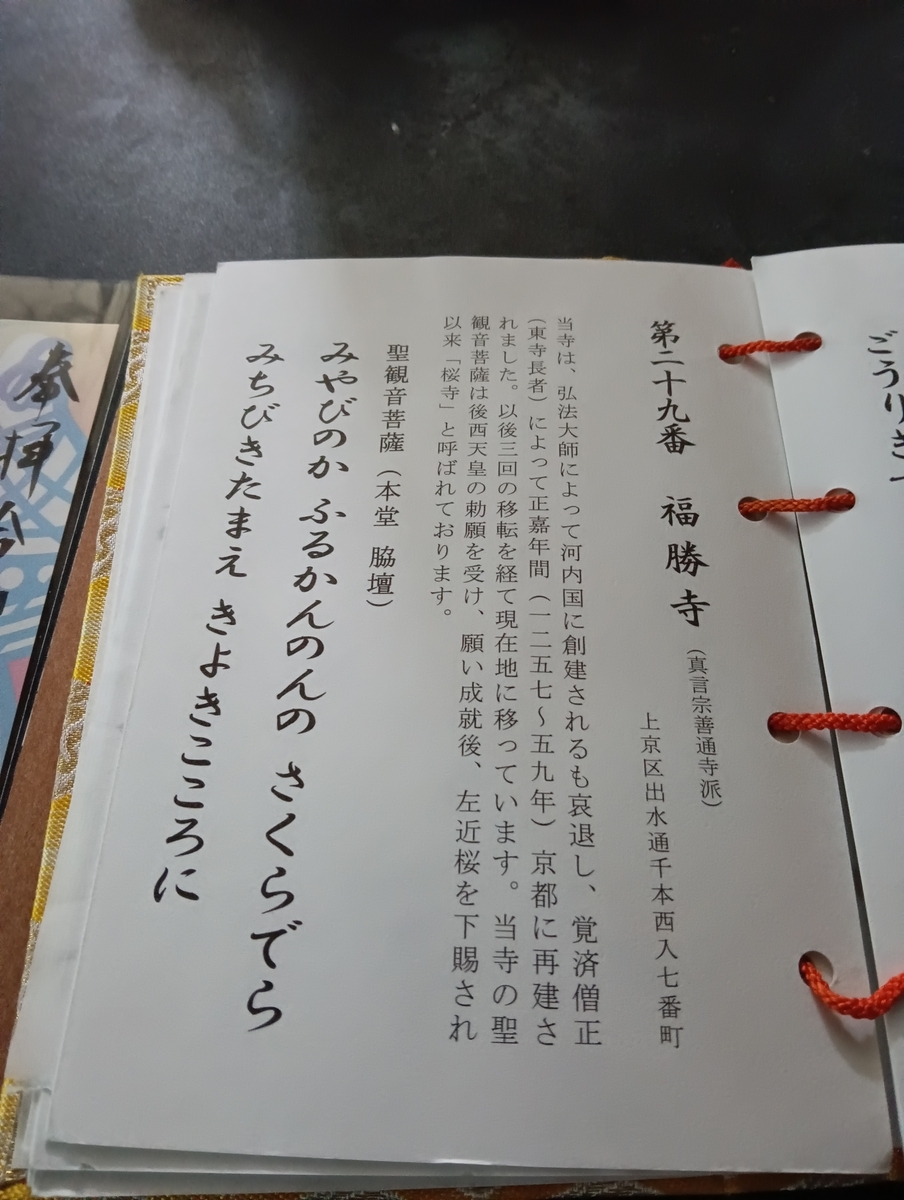 ごうりき
第二十九番　福勝寺
（真言宗善通寺派）
上京区出水通千本西入七番町
当寺は、弘法大師によって河内国に創建されるも哀退し、覚済僧正
（東寺長者）によって正嘉年間（一二五七～五九年）京都に再建さ
れました。以後三回の移転を経て現在地に移っています。当寺の聖
観音菩薩は後西天皇の勅願を受け、願い成就後、左近桜を下賜され
以来「桜寺」と呼ばれております。
聖観音菩薩（本堂　脇壇）
みやびのか　ふるかんのんの　さくらでら
みちびきたまえ　きよきこころに
奉拝